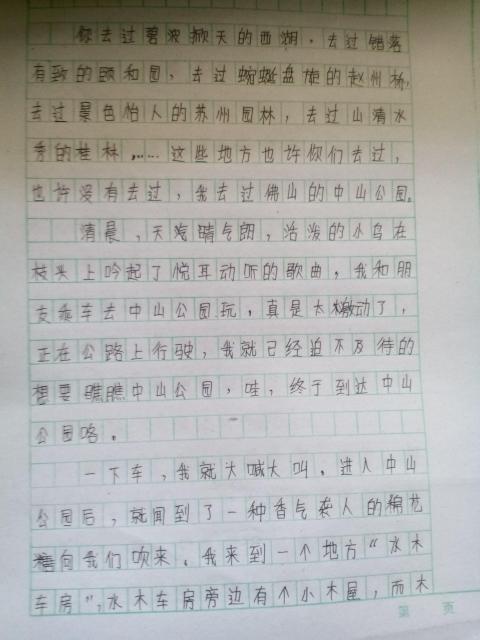 你去过碧波掀天的西湖，去过错落
有致的颐和园，去过蜿蜒盘旋的赵州桥，
去过景色怡人的苏州园林，去过山清水
秀的桂林，……这些地方也许你们去过，
也许没有去过，我去过佛山的中山公园。
清晨，天汽晴气朗，活泼的小鸟在
枝头上吟起了悦耳动听的歌曲，我和朋
友乘车去中山公园玩，真是太激动了，
正在公路上行驶，我就已经迫不及待的
想要瞧瞧中山公园，哇，终于到达中山
公园咯。
一下车，我就大喊大叫。进入中山
公园后，就闻到了一种香气袭人的棉花
向我们吹来。我来到一个地方“水木
车房”，水木车房旁边有个小木屋，而木
第 页